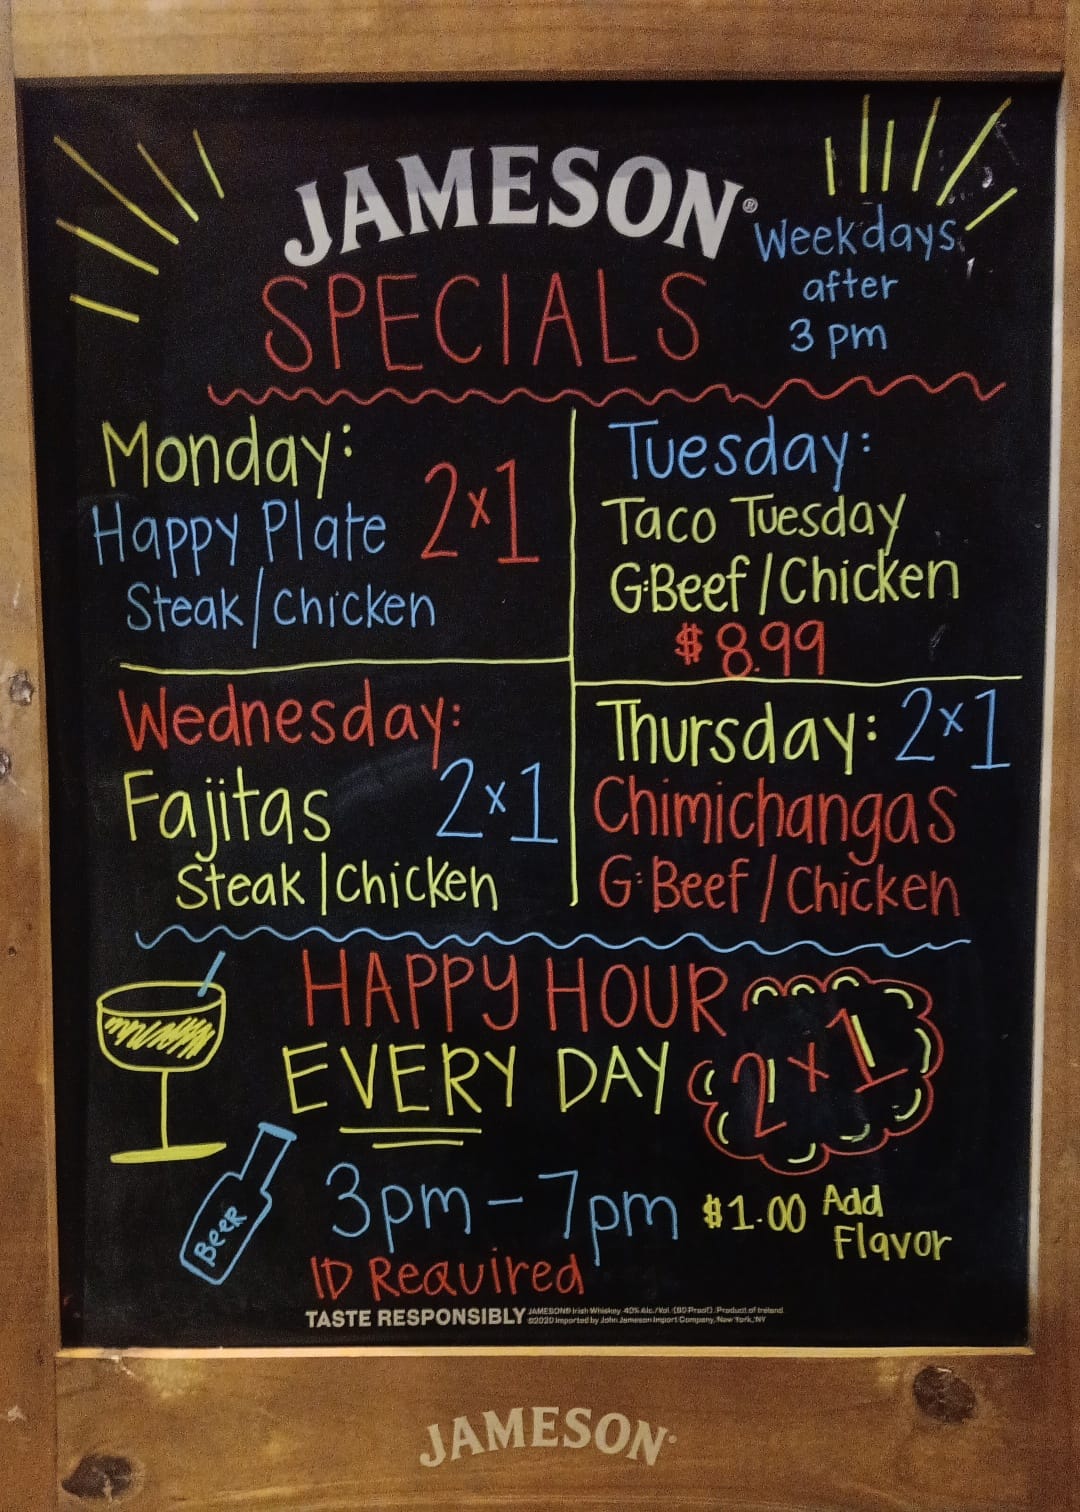 JAMESON®
SPECIALS
Weekdays
after
3 pm
Monday:
Happy Plate 2x1
Steak/Chicken
Tuesday:
Taco Tuesday
G:Beef/Chicken
$8.99
Wednesday:
Fajitas 2x1
Steak/Chicken
Thursday: 2x1
Chimichangas
G:Beef/Chicken
HAPPY HOUR
EVERY DAY 2x1
3pm-7pm
$1.00 Add
Flavor
BEER
ID Required
TASTE RESPONSIBLY
JAMESON® Irish Whiskey. 40% Alc./Vol. (80 Proof). Product of Ireland.
©2020 Imported by John Jameson Import Company, New York, NY
JAMESON